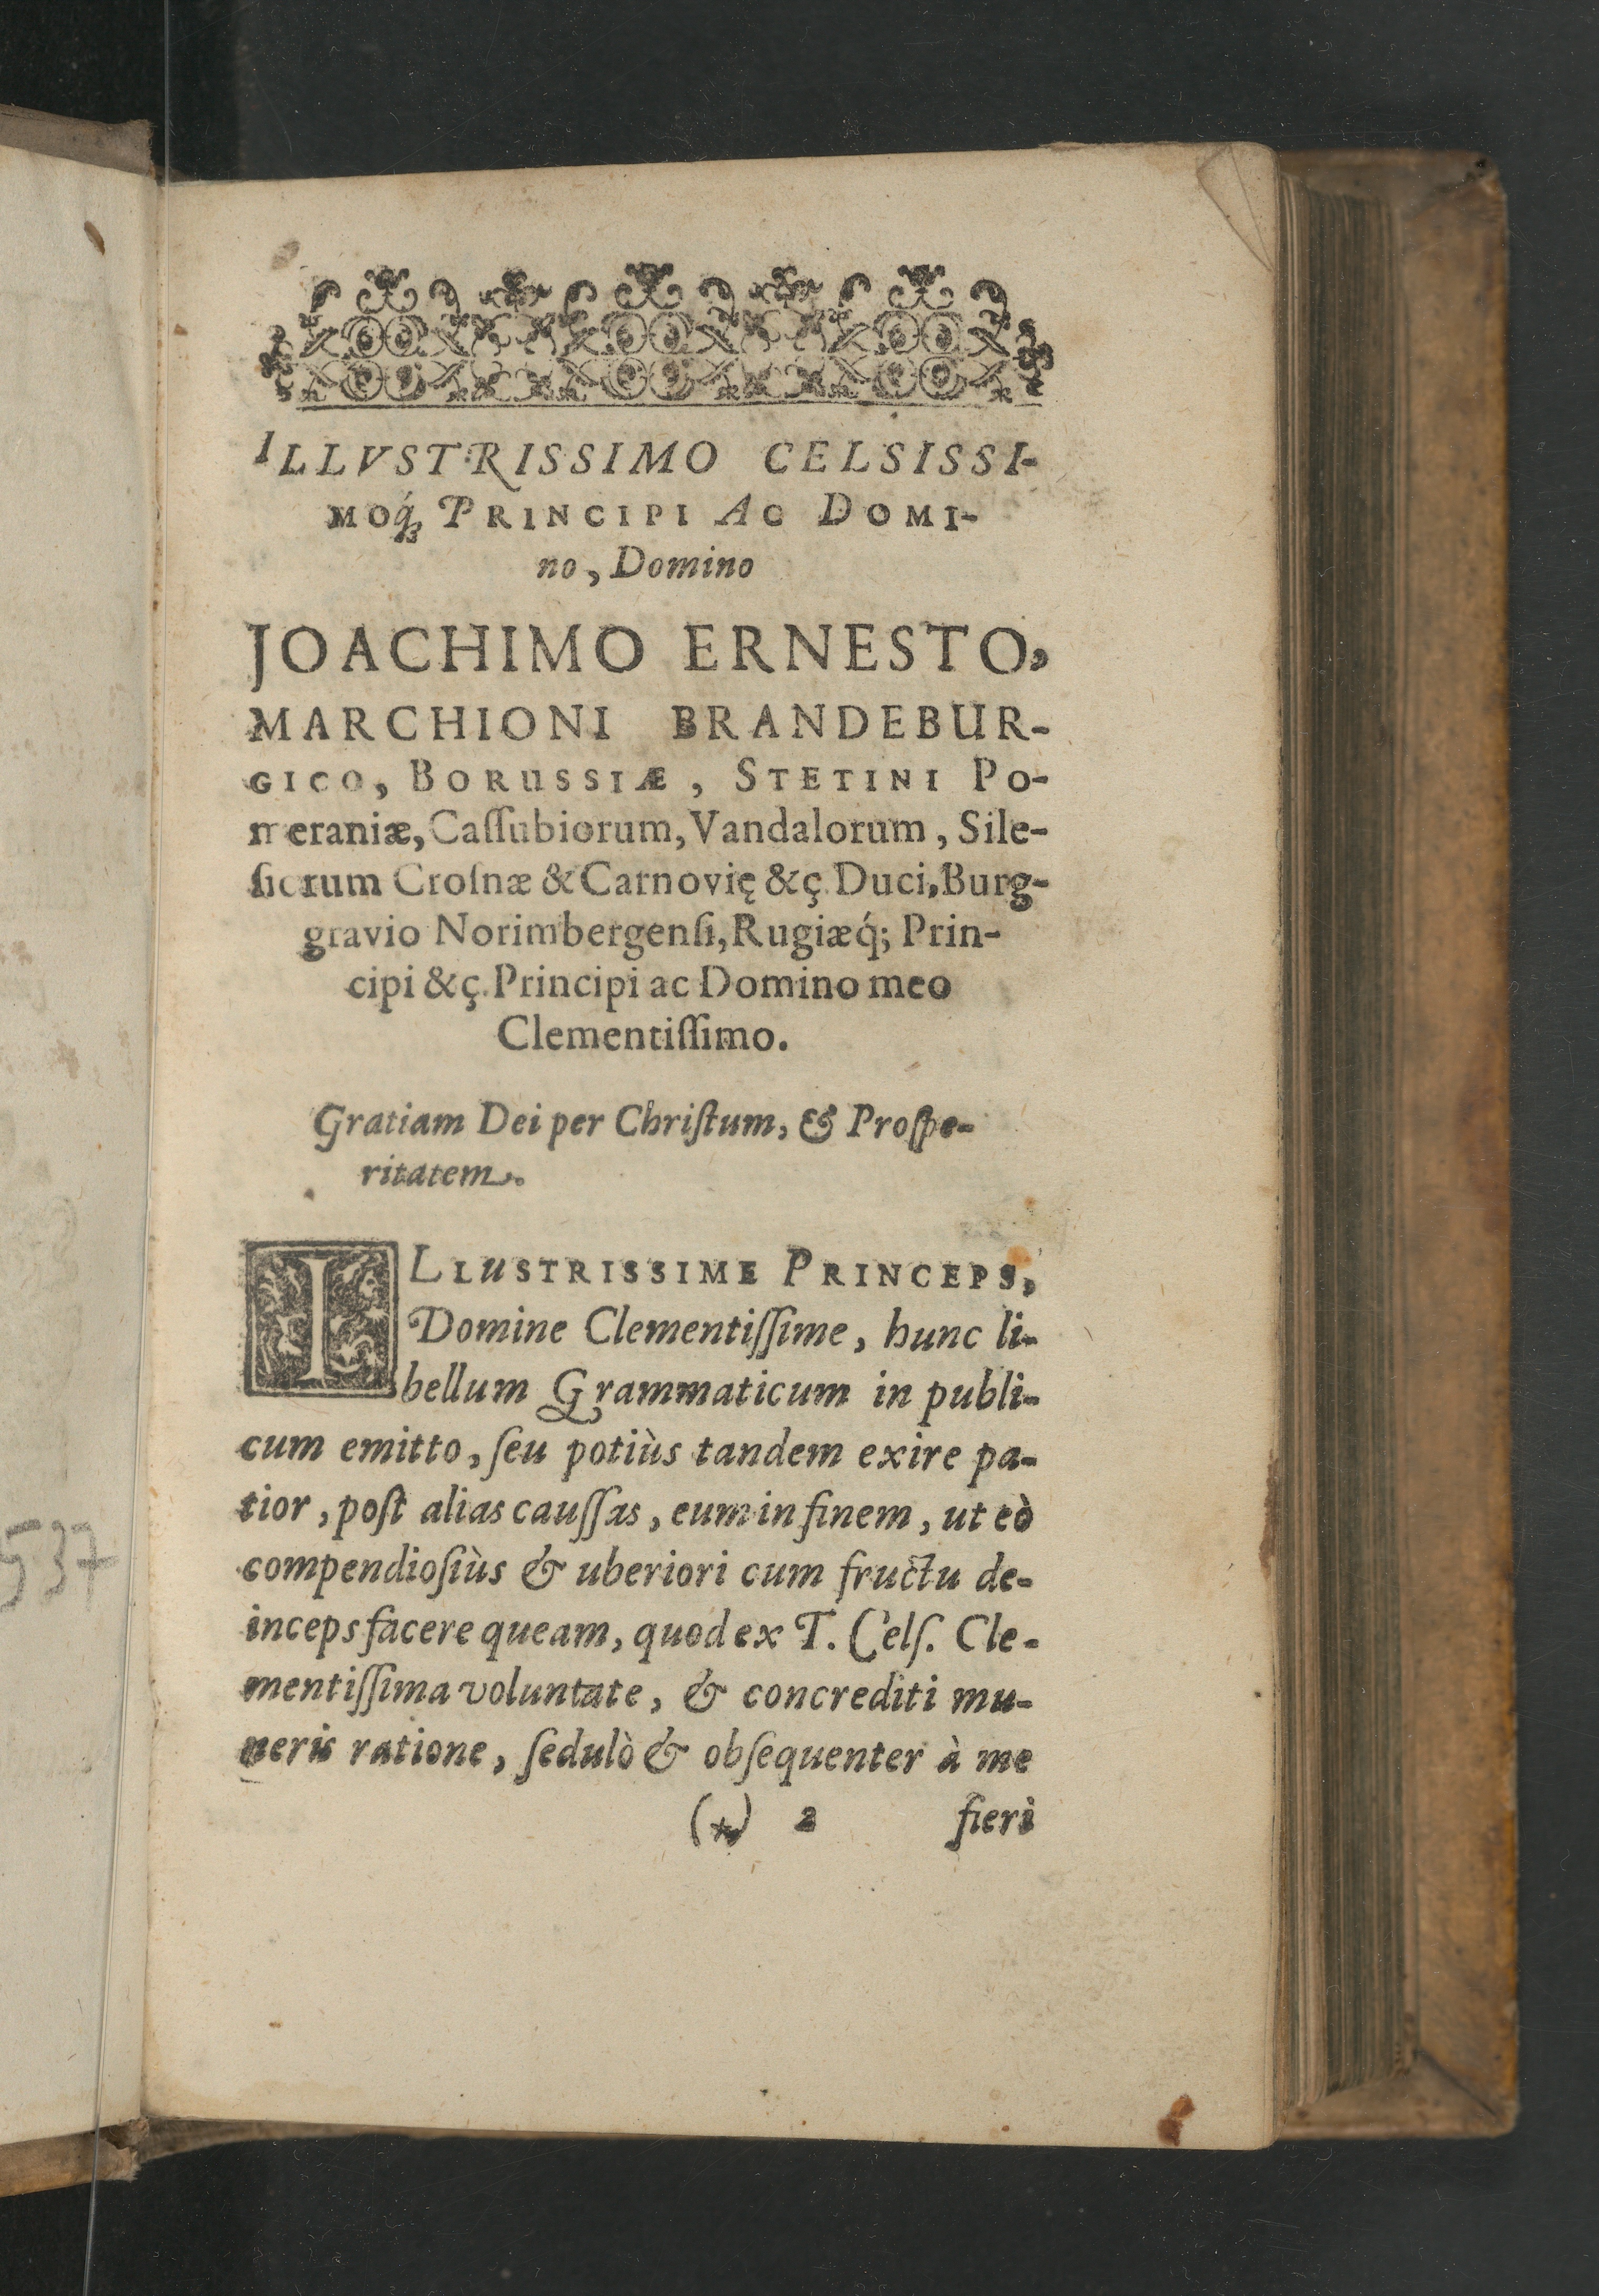 ILLVSTRISSIMO CELSISSI-
MOq́; PRINCIPI AC DOMI-
no, Domino
JOACHIMO ERNESTO,
MARCHIONI BRANDEBUR-
GICO, BORUSSIÆ, STETINI PO-
meraniæ, Caſſubiorum, Vandalorum, Sile-
ſiorum Croſnæ & Carnovię &ç. Duci, Burg-
gravio Norimbergenſi, Rugiæq́; Prin-
cipi &ç. Principi ac Domino meo
Clementiſſimo.
Gratiam Dei per Chriſtum, & Proſpe-
ritatem.
ILLUSTRISSIME PRINCEPS,
Domine Clementiſſime, hunc li-
bellum Grammaticum in publi-
cum emitto, ſeu potiùs tandem exire pa-
tior, poſt alias cauſſas, eum in finem, ut eò
compendioſiùs & uberiori cum fructu de-
inceps facere queam, quod ex T. Celſ. Cle-
mentiſſima voluntate, & concrediti mu-
neris ratione, ſedulò & obſequenter à me
(*) 2 fieri
537